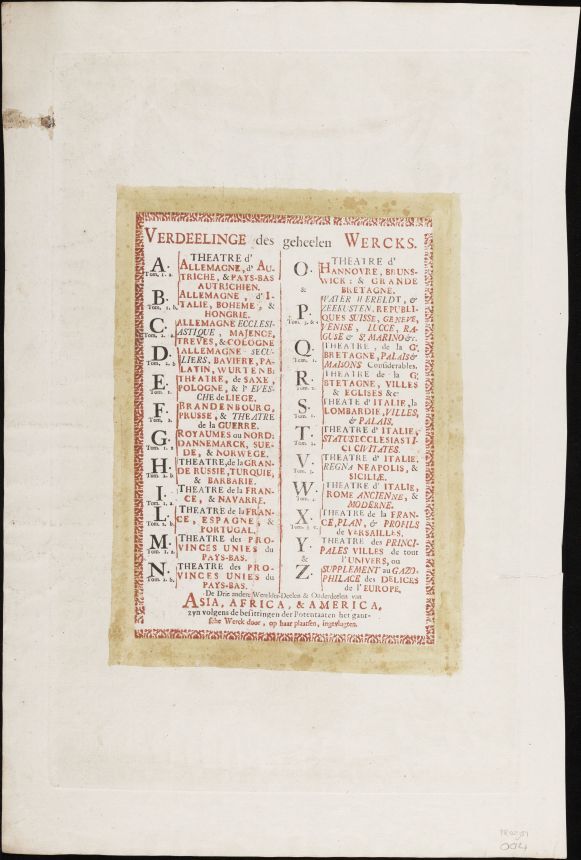 VERDEELINGE des geheelen WERCKS.
A. THEATRE d'
ALLEMAGNE, d' AU-
TRICHE, & PAYS-BAS
AUTRICHIEN.
B. ALLEMAGNE, d' I-
TALIE, BOHEME, &
HONGRIE.
C. ALLEMAGNE ECCLESI-
ASTIQUE, MAJENCE,
TREVES, & COLOGNE
D. ALLEMAGNE SECU-
LIERS, BAVIERE, PA-
LATIN, WURTENB:
E. THEATRE, de SAXE,
POLOGNE, & l'EVES-
CHE de LIEGE.
F. BRANDENBOURG,
PRUSSE, & THEATRE
de la GUERRE.
G. ROYAUMES du NORD:
DANNEMARCK, SUE-
DE, & NORWEGE.
H. THEATRE, de la GRAN-
DE RUSSIE, TURQUIE,
& BARBARIE.
I. THEATRE de la FRAN-
CE, & NAVARRE.
L. THEATRE de la FRAN-
CE, ESPAGNE, &
PORTUGAL.
M. THEATRE des PRO-
VINCES UNIES du
PAYS-BAS.
N. THEATRE des PRO-
VINCES UNIES du
PAYS-BAS.
O. THEATRE d'
HANNOVRE, BRUNS-
WICK: & GRANDE
& BRETAGNE.
P. WATER WERELDT, &
ZEEKUSTEN, REPUBLI-
QUES SUISSE, GENEVE,
VENISE, LUCCE, RA-
GUSE & S. MARINO &c.
Q. THEATRE, de la G.
BRETAGNE, PALAIS &
MAISONS Considerables.
R. THEATRE de la G.
BTETAGNE, VILLES
& EGLISES &c
S. THEATE d' ITALIE, la
LOMBARDIE, VILLES,
& PALAIS.
T. THEATRE d' ITALIE,
STATUS ECCLESIASTI-
CI CIVITATES.
V. THEATRE d' ITALIE,
REGNA NEAPOLIS, &
SICILIÆ.
W. THEATRE d' ITALIE,
ROME ANCIENNE, &
MODERNE.
X. THEATRE de la FRAN-
CE, PLAN, & PROFILS
de VERSAILLES.
Y. THEATRE des PRINCI-
PALES VILLES de tout
& l'UNIVERS, ou
Z. SUPPLEMENT au GAZO-
PHILACE des DELICES
de l' EUROPE.
De Drie andere Werelds-Deelen & Onderdeelen van
ASIA, AFRICA, & AMERICA,
zyn volgens de besittingen der Potentaaten het gant-
sche Werck door, op haar plaatsen, ingevlagten.
004